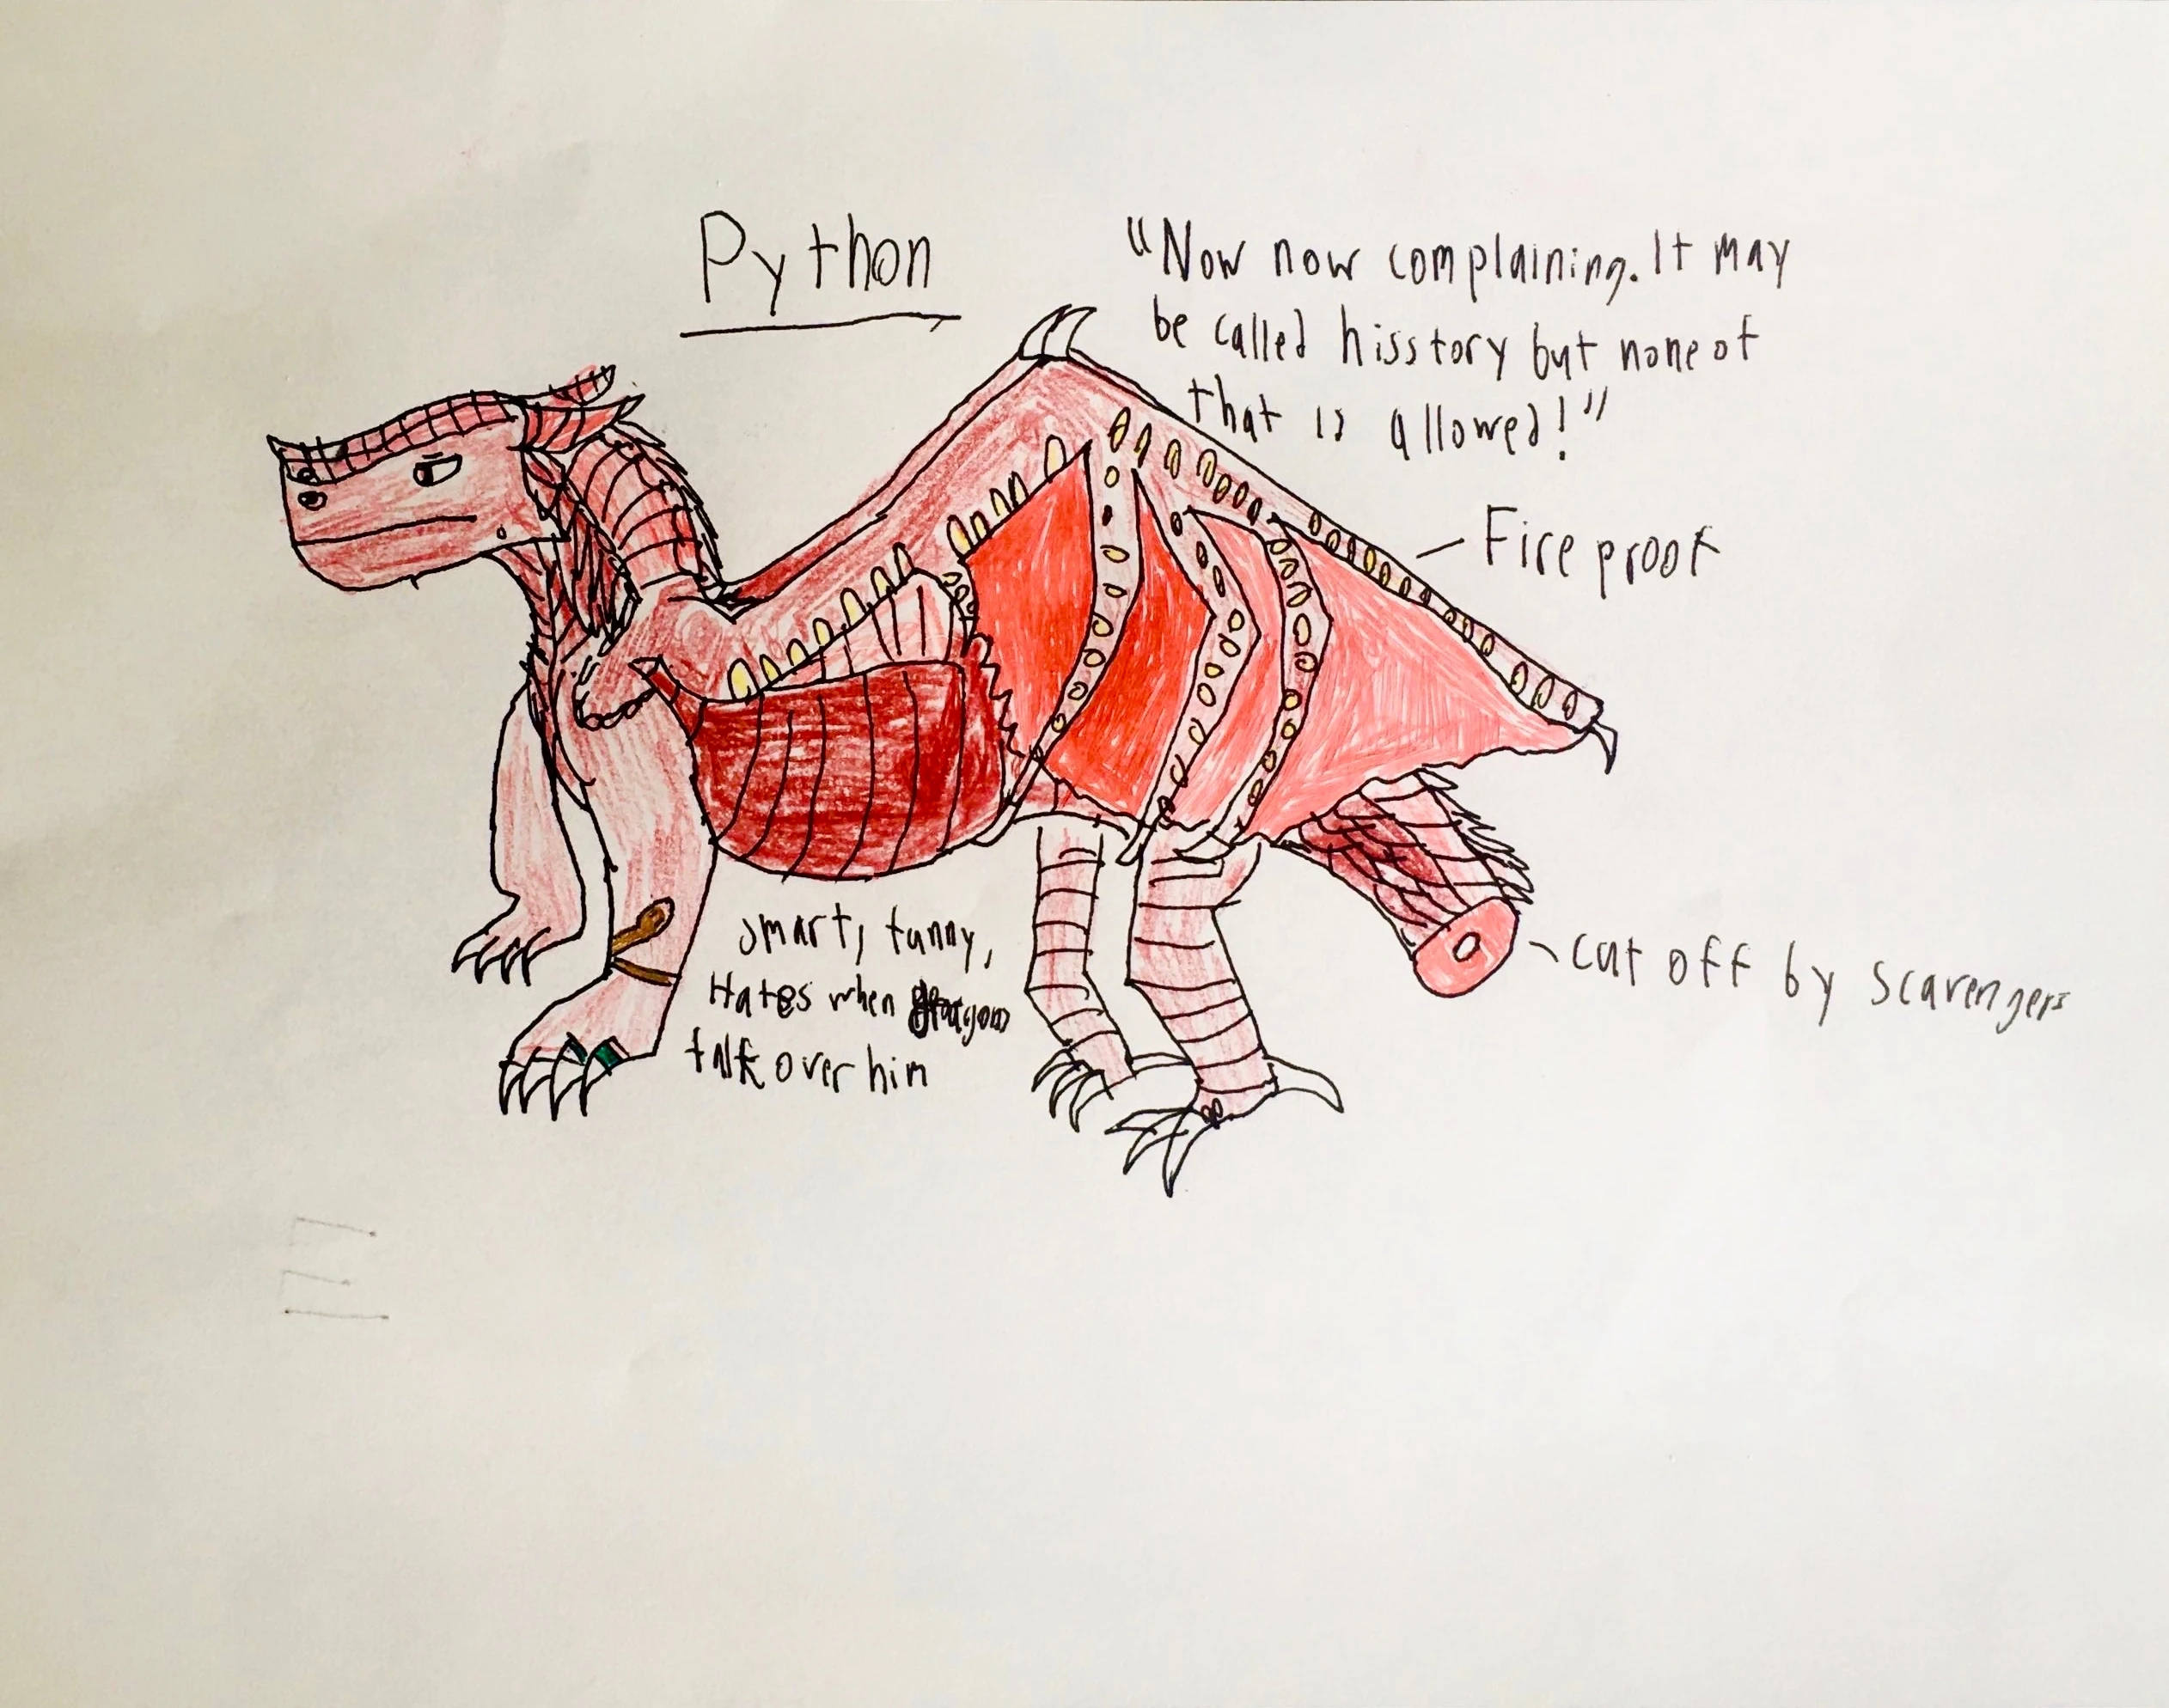 Python
"Now now complaining. It may
be called hisstory but none of
that is allowed!"
Fire proof
cut off by scavengers
smart, funny,
Hates when dragons
talk over him